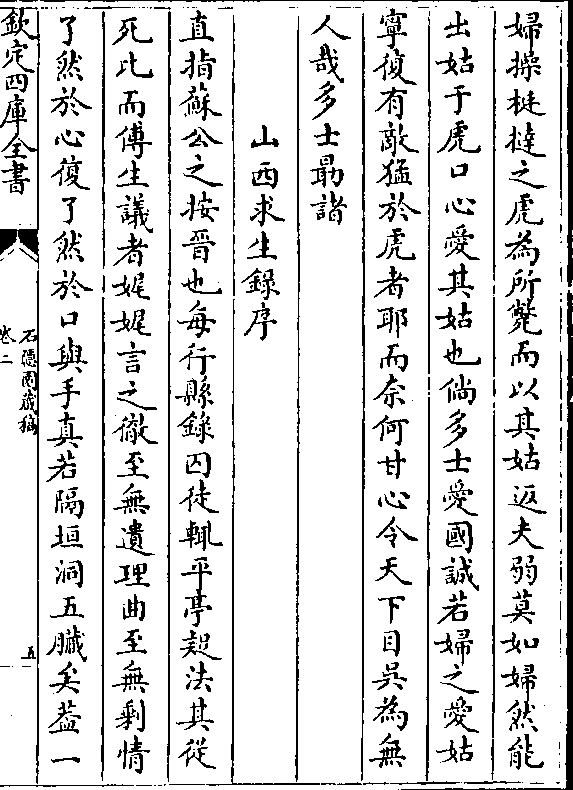 婦操梃撻之虎為所斃而以其姑返夫弱莫如婦然能
出姑于虎口心愛其姑也倘多士愛國誠若婦之愛姑
寧復有敵猛於虎者耶而奈何甘心令天下目吳為無
人哉多士勗諸
山西求生錄序
直指蘇公之按晉也每行縣錄囚徒輒平亭疑法其從
死比而傅生議者娓娓言之徹至無遺理曲至無剩情
了然於心復了然於口與手真若隔垣洞五臟矣葢一
欽定四庫全書
石隱園藏稿
卷二
五